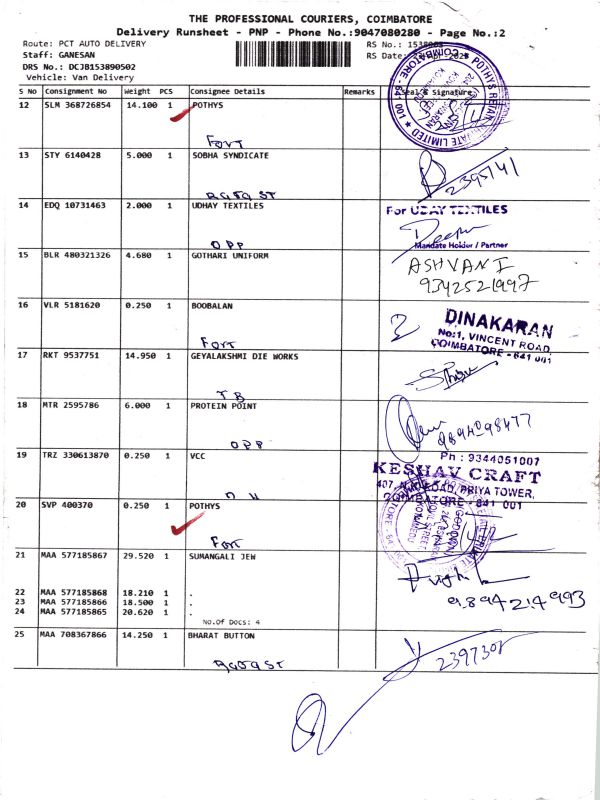 THE PROFESSIONAL COURIERS, COIMBATORE
Delivery Runsheet - PNP - Phone No.:9047080280 - Page No.:2
Route: PCT AUTO DELIVERY
RS No.:
Staff: GANESAN
RS Date:
DRS No.: DCJB153890502
Vehicle: Van Delivery
S No Consignment No Weight PCS Consignee Details Remarks Seal & Signature
12 SLM 368726854 14.100 1 POTHYS
Fort
13 STY 6140428 5.000 1 SOBHA SYNDICATE
2395141
Raja St
14 EDQ 10731463 2.000 1 UDHAY TEXTILES
For UDAY TEXTILES
Mandate Holder / Partner
OPP
15 BLR 480321326 4.680 1 GOTHARI UNIFORM
ASHVANI
9342521997
16 VLR 5181620 0.250 1 BOOBALAN
DINAKARAN
No:1, VINCENT ROAD,
COIMBATORE - 641 001
Fort
17 RKT 9537751 14.950 1 GEYALAKSHMI DIE WORKS
TB
18 MTR 2595786 6.000 1 PROTEIN POINT
9894098477
OPP
19 TRZ 330613870 0.250 1 VCC
Ph : 9344051007
KESHAV CRAFT
ROAD, PRIYA TOWER,
COIMBATORE - 641 001
20 SVP 400370 0.250 1 POTHYS
Fort
21 MAA 577185867 29.520 1 SUMANGALI JEW
22 MAA 577185868 18.210 1 .
9894214993
23 MAA 577185866 18.500 1 .
24 MAA 577185865 20.620 1 .
No.Of Docs: 4
25 MAA 708367866 14.250 1 BHARAT BUTTON
Raja St